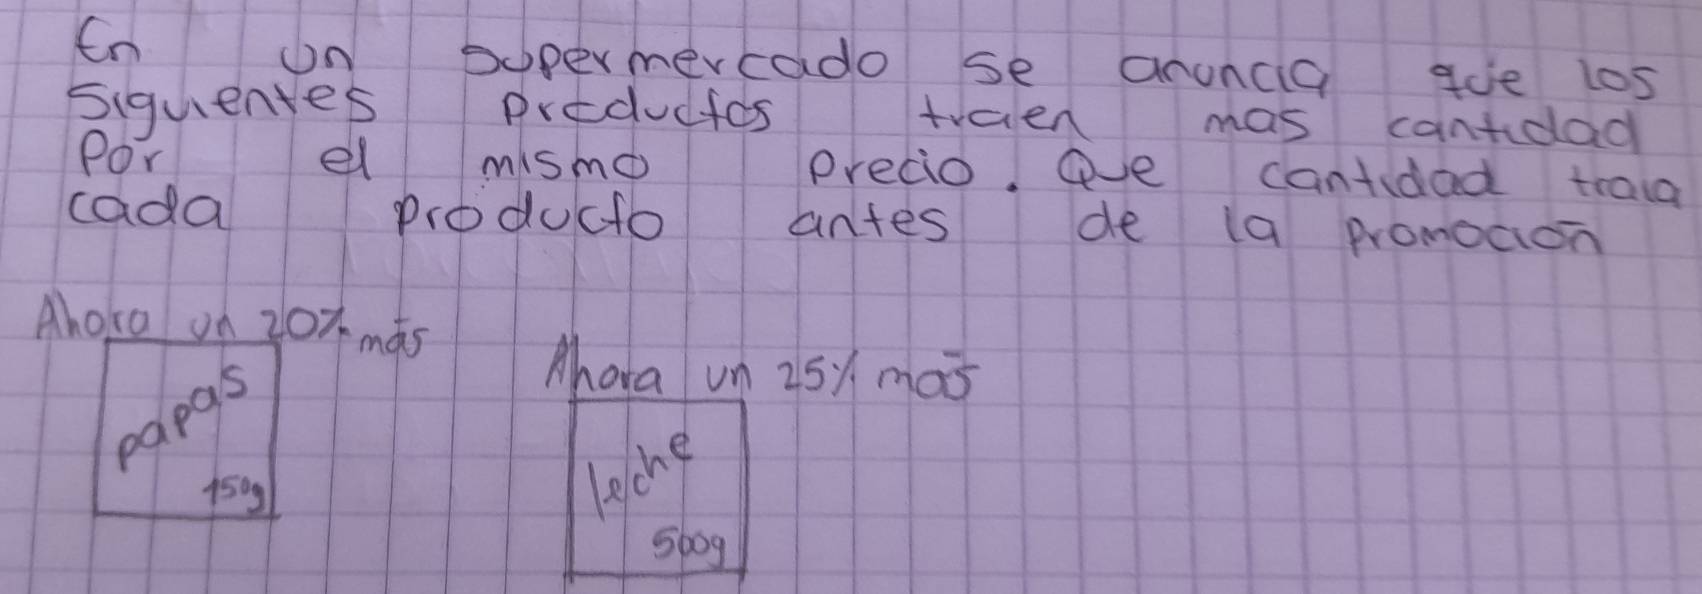 En un supermercado se anuncia que los
siguientes productos traen mas cantidad
Por el mismo precio. Que cantidad traia
cada producto antes de la promoción
Ahora un 20% más
papas
150g
Ahora un 25% más
leche
500g